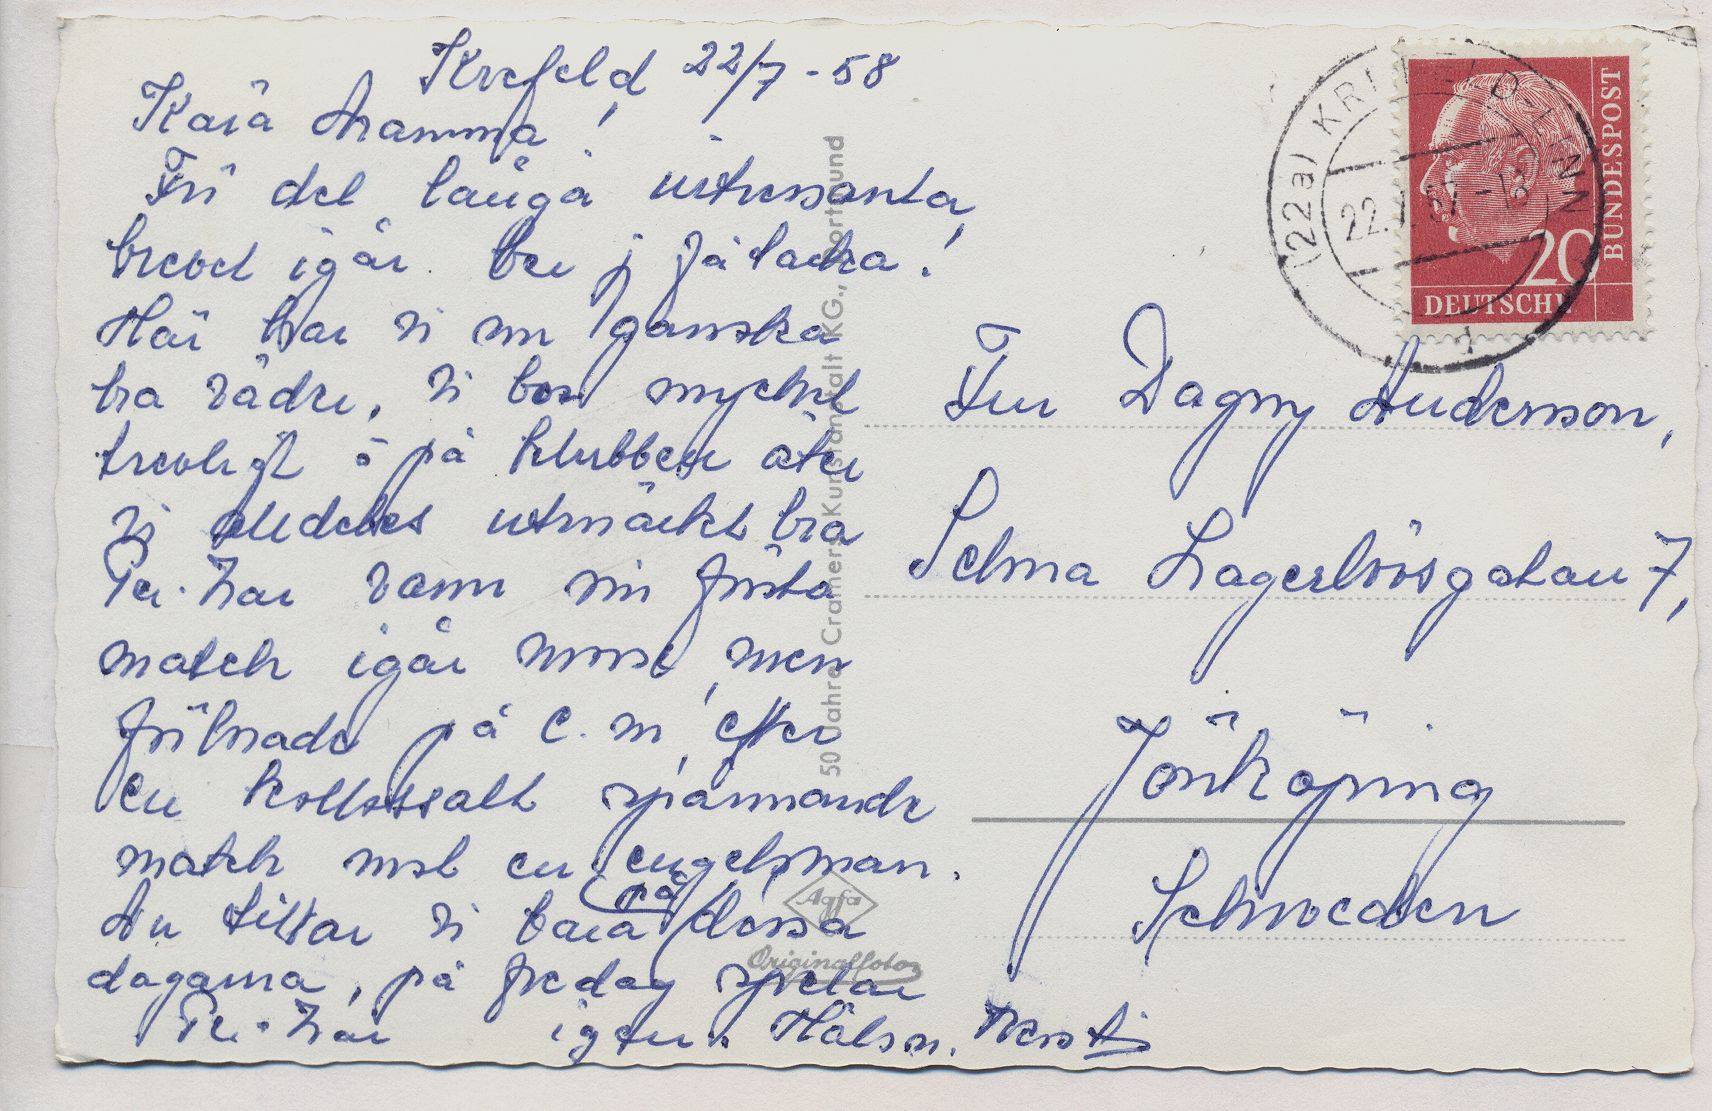 Krefeld 22/7 - 58
Kära Mamma!
För det långa intressanta,
brevet igår ber j få tacka!
Här har vi nu ganska
bra väder, vi bor mycket
trevligt o på klubben äter
vi alldeles utmärkt bra
Per-Ivar vann sin första
match igår morse, men
förlorade på e.m, efter
en kollossalt spännande
match mot en engelsman.
Nu tittar vi bara på dessa
dagarna, på fredag spelar
Per-Ivar igen. Hälsn. Kersti
Fru Dagny Andersson,
Selma Lagerlöfsgatan 7,
Jönköping
Schweden
(22a) KREFELD-LINN
22.7. -18
BUNDESPOST
20
DEUTSCHE
50 Jahre Cramers Kunstanstalt KG., Dortmund
Agfa
Originalfoto